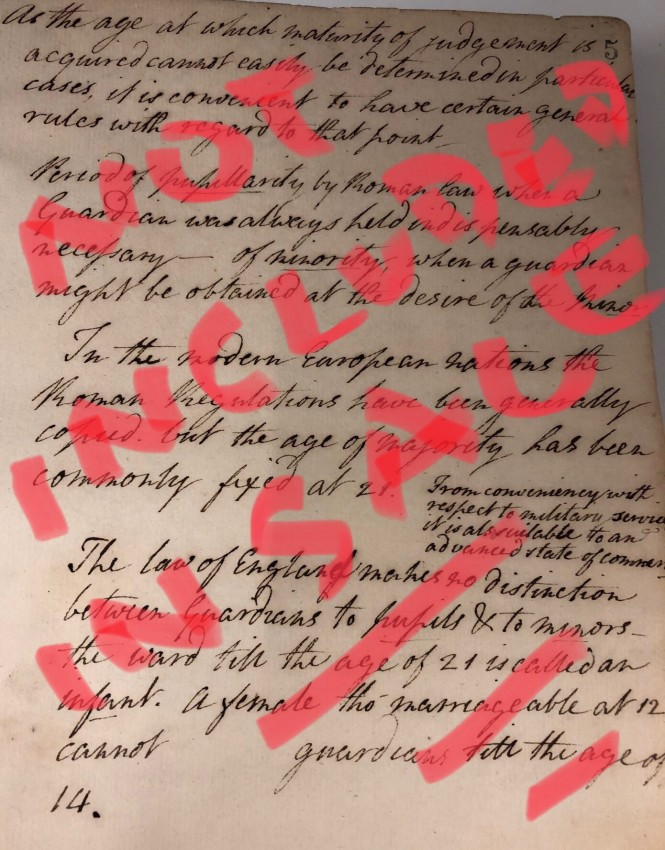 As the age at which maturity of judgement is
5
acquired cannot easily be determined in particular
cases, it is convenient to have certain general
rules with regard to that point
Period of pupillarity by Roman law when a
Guardian was always held indispensably
necessary — of minority, when a guardian
might be obtained at the desire of the Minor
In the modern European nations the
Roman Regulations have been generally
copied. but the age of majority has been
commonly fixed at 21.
From conveniency with
respect to military service
it is also suitable to an
advanced state of commer
The law of England makes no distinction
between Guardians to pupils & to minors —
the ward till the age of 21 is called an
infant. A female tho marriageable at 12
cannot guardians till the age of
14.
NOT
INCLUDED
IN SALE